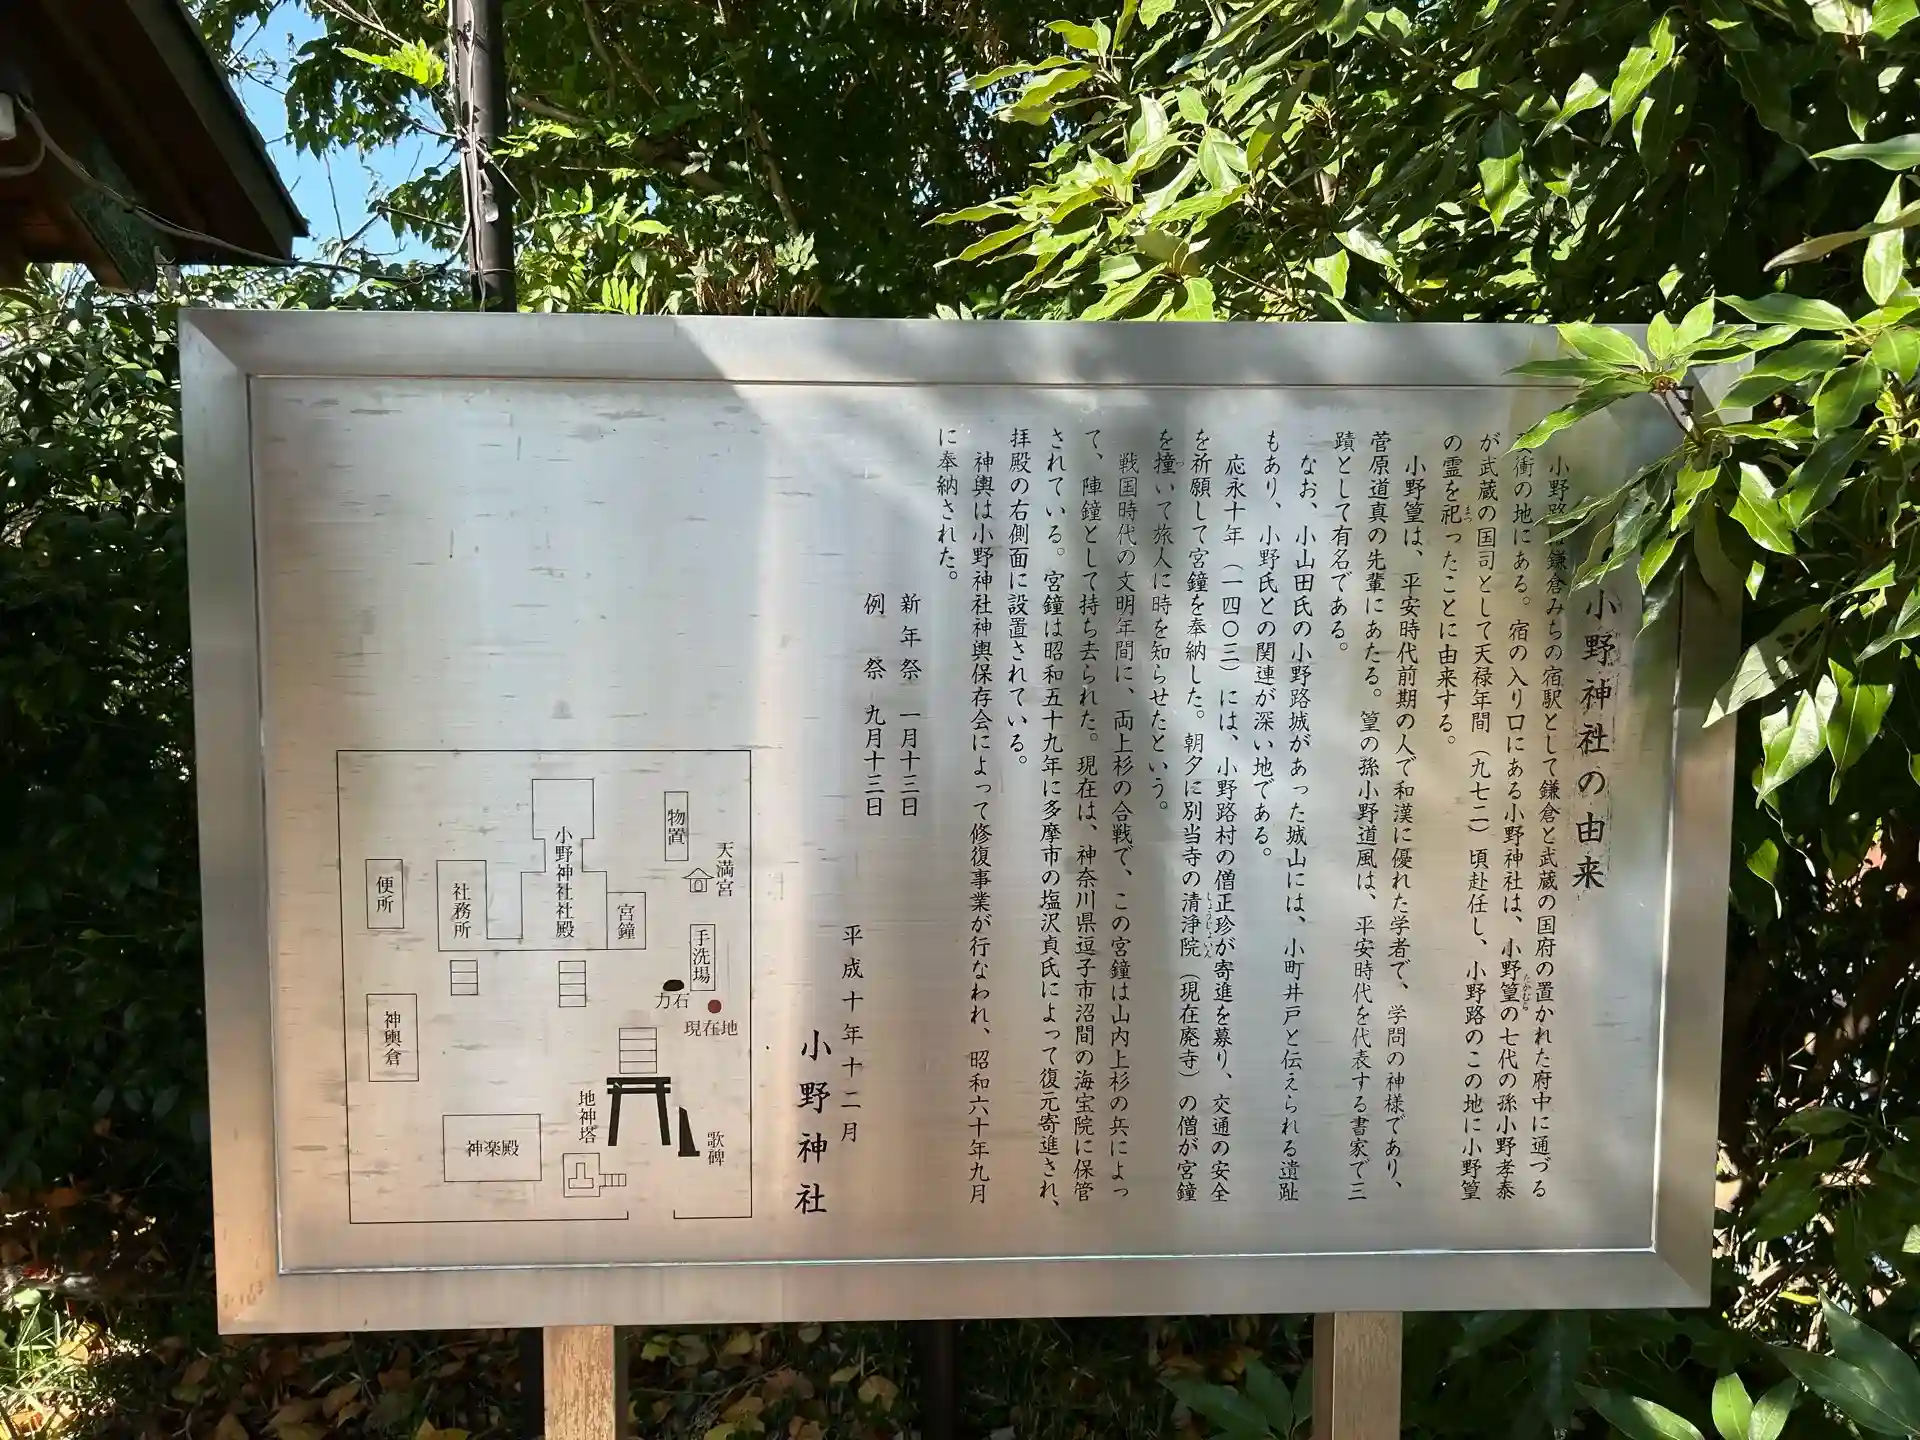 小野神社の由来
小野路は鎌倉みちの宿駅として鎌倉と武蔵の国府の置かれた府中に通づる
衝の地にある。宿の入り口にある小野神社は、小野篁の七代の孫小野孝泰
が武蔵の国司として天禄年間（九七二）頃赴任し、小野路のこの地に小野篁
の霊を祀ったことに由来する。
小野篁は、平安時代前期の人で和漢に優れた学者で、学問の神様であり、
菅原道真の先輩にあたる。篁の孫小野道風は、平安時代を代表する書家で三
蹟として有名である。
なお、小山田氏の小野路城があった城山には、小町井戸と伝えられる遺趾
もあり、小野氏との関連が深い地である。
応永十年（一四〇三）には、小野路村の僧正珍が寄進を募り、交通の安全
を祈願して宮鐘を奉納した。朝夕に別当寺の清浄院（現在廃寺）の僧が宮鐘
を撞いて旅人に時を知らせたという。
戦国時代の文明年間に、両上杉の合戦で、この宮鐘は山内上杉の兵によっ
て、陣鐘として持ち去られた。現在は、神奈川県逗子市沼間の海宝院に保管
されている。宮鐘は昭和五十九年に多摩市の塩沢貞氏によって復元寄進され、
拝殿の右側面に設置されている。
神輿は小野神社神輿保存会によって修復事業が行なわれ、昭和六十年九月
に奉納された。
新年祭 一月十三日
例祭 九月十三日
平成十年十二月
小野神社
物置
天満宮
小野神社社殿
宮鐘
社務所
便所
手洗場
力石
現在地
神輿倉
地神塔
歌碑
神楽殿